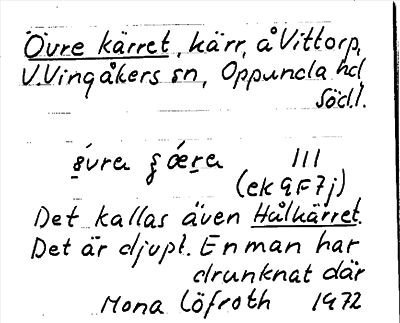 Övre kärret, kärr, å Vittorp,
V. Vingåkers sn, Oppunda hd
Södl.
III
(ek 9F7j)
Det kallas även Hålkärret.
Det är djupt. En man har
drunknat där
Mona Löfroth 1972